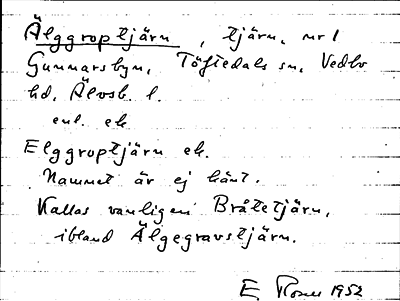 Älggroptjärn, tjärn, nr 1
Gunnarsbyn, Töftedals sn, Vedbo
hd, Älvsb. l.
enl. ek
Elggroptjärn ek.
Namnet är ej känt.
Kallas vanligen Bråtetjärn,
ibland Älgegravstjärn.
E 1952